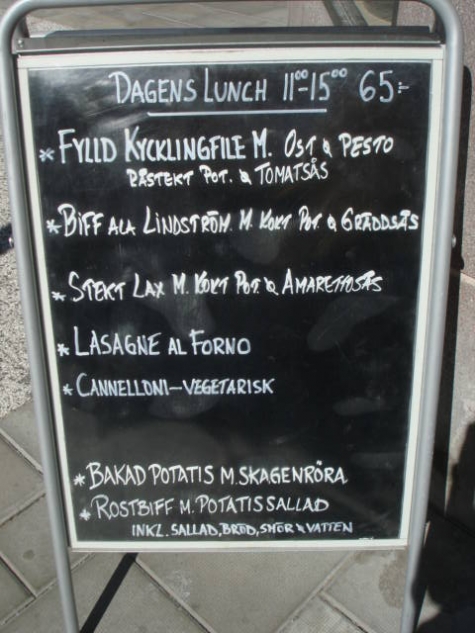 DAGENS LUNCH 11⁰⁰-15⁰⁰ 65:-
* FYLLD KYCKLINGFILE M. OST & PESTO
RÅSTEKT POT. & TOMATSÅS
* BIFF ALA LINDSTRÖM M. KOKT POT. & GRÄDDSÅS
* STEKT LAX M. KOKT POT. & AMARETTOSÅS
* LASAGNE AL FORNO
* CANNELLONI-VEGETARISK
* BAKAD POTATIS M. SKAGENRÖRA
* ROSTBIFF M. POTATISSALLAD
INKL. SALLAD, BRÖD, SMÖR & VATTEN